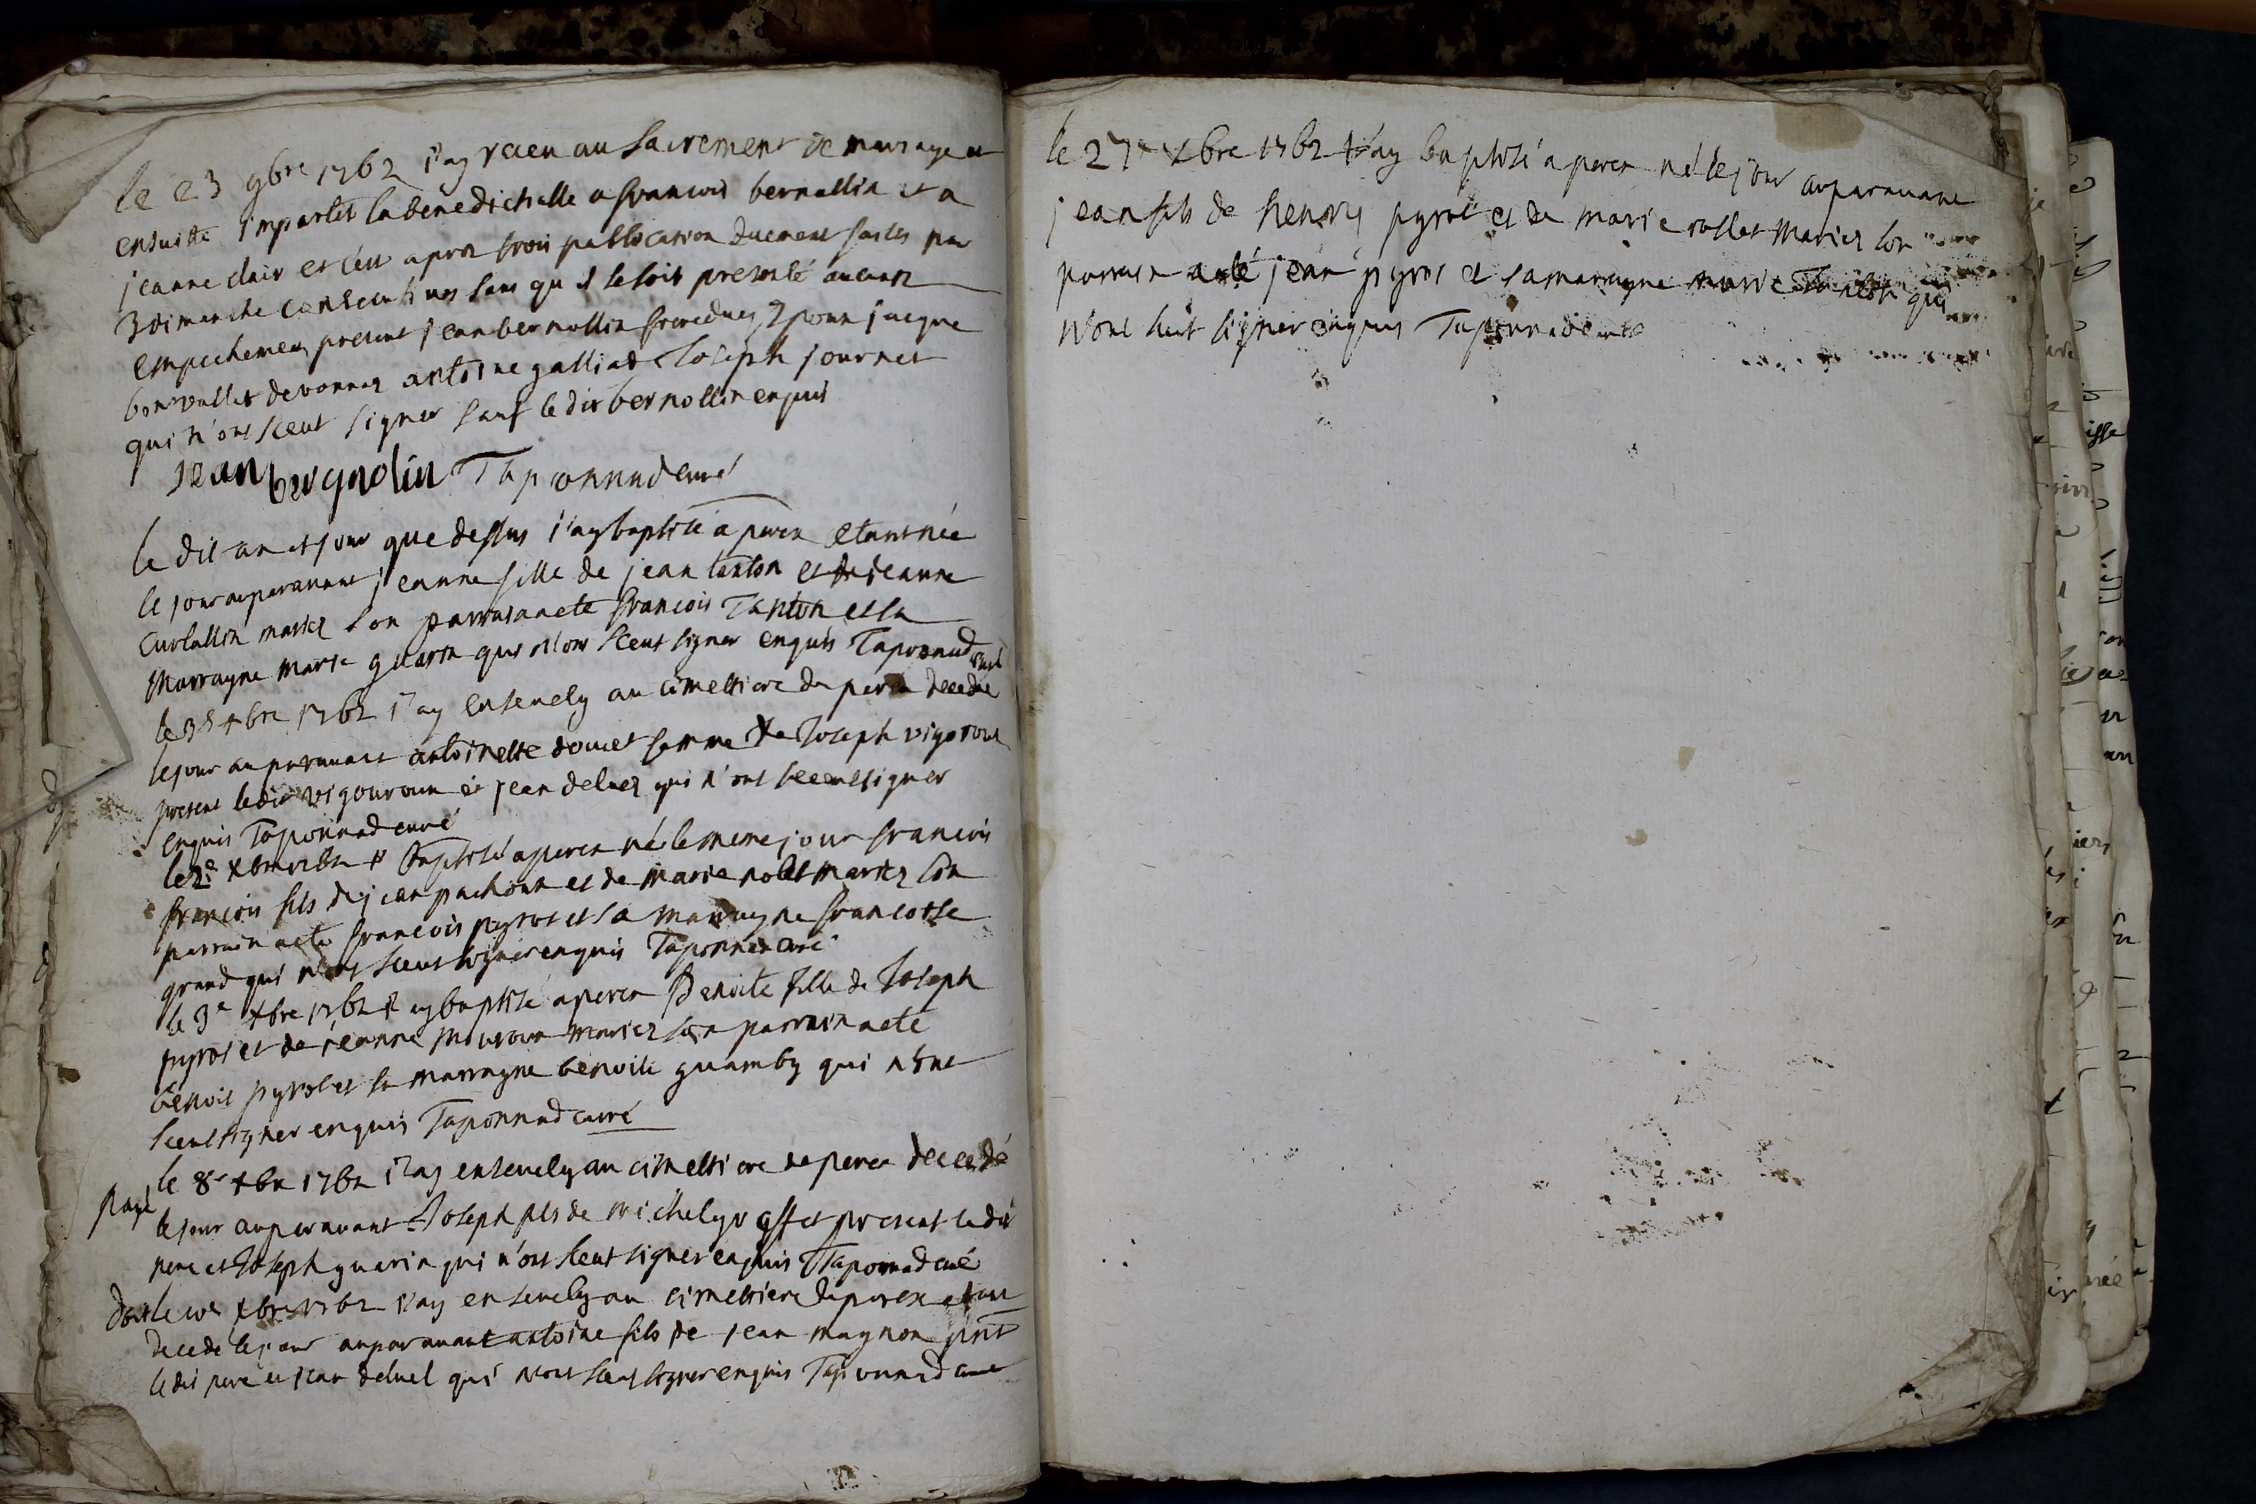 le 23 9bre 1762 j'ay receu au sacrement de mariage et
ensuitte impartit la benedictielle a francois bernollin et a
jeanne clair et c'est apres trois publication duement faites par
3 dimanche consecutives sans qu'il se soit presenté aucunz
empechemen present jean bernollin
bonvallet de vonnaz antoine galliad Joseph journet
qui n'ont sceut signer sauf le dit bernollin enquis
Jean bergnolin Taponnad curé
le dit an et jour que dessus j'ay baptisé a perex etant née
le jour auparavant jeanne fille de jean tanton et de jeanne
curtallin mariez son parrain a eté francois Tanton et sa
Marrayne marie guerin qui n'ont sceut signer enquis Taponnad curé
le xbre 1762 j'ay ensevely au cimettiere de perex decedée
le jour auparavant antoinette doucet femme de Joseph vigoroux
present ledit vigouroux et jean deluez qui n'ont sceeut signer
enquis Taponnad curé
le 2e xbre 1762 baptisé a perex né le meme jour francois
francois fils de jean pachoux et de marie nolet mariez son
parrain a eté francois pyrot et sa marrayne francoise
grand qui n'ont sceut signer enquis Taponnad curé
le 3e xbre 1762 j'ay baptisé a perex Benoite fille de Joseph
pyrot et de jeanne Mouroux mariez son parrain a eté
benoit pyrot et sa marrayne benoite guamby qui n'ont
sceut signer enquis Taponnad curé
le 8e xbre 1762 j'ay ensevely au cimettiere de perex decedé
payé le jour auparavant Joseph fils de michel present ledit
pere et Joseph guerin qui n'ont sceut signer enquis Taponnad curé
doit le xbre 1762 j'ay ensevely au cimettiere de perex etant
decedé le jour auparavant antoine fils de jean magnon pnt
le dit pere et jean deluel qui n'ont sceut signer enquis Taponnad curé
le 27e xbre 1762 j'ay baptisé a perex né le jour auparavant
jean fils de henry pyrot et de marie rollet mariez son
parrain a eté jean pyrot et sa marrayne marie Tanton qui
n'ont sceut signer enquis Taponnad curé